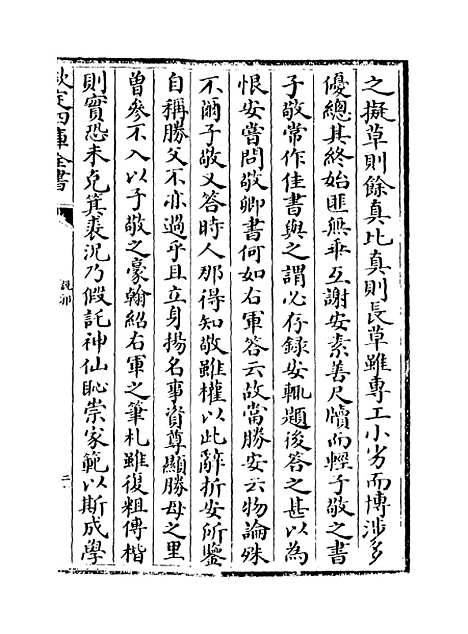 之擬草則餘真比真則長草雖専工小劣而博涉多
優總其終始匪無乖互謝安素善尺牘而輕子敬之書
子敬常作佳書與之謂必存録安輒題後答之甚以為
恨安嘗問敬卿書何如右軍答云故當勝安云物論殊
不爾子敬又答時人那得知敬雖權以此辭折安所鑒
自稱勝父不亦過乎且立身揚名事資尊顯勝母之里
曽參不入以子敬之豪翰紹右軍之筆札雖復粗傳楷
則實恐未克箕裘況乃假託神仙恥崇家範以斯成學
欽定四庫全書
說郛
二